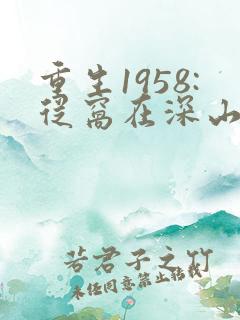 重生1958:
从窝在深山
若君子之竹
未任同意禁止转载